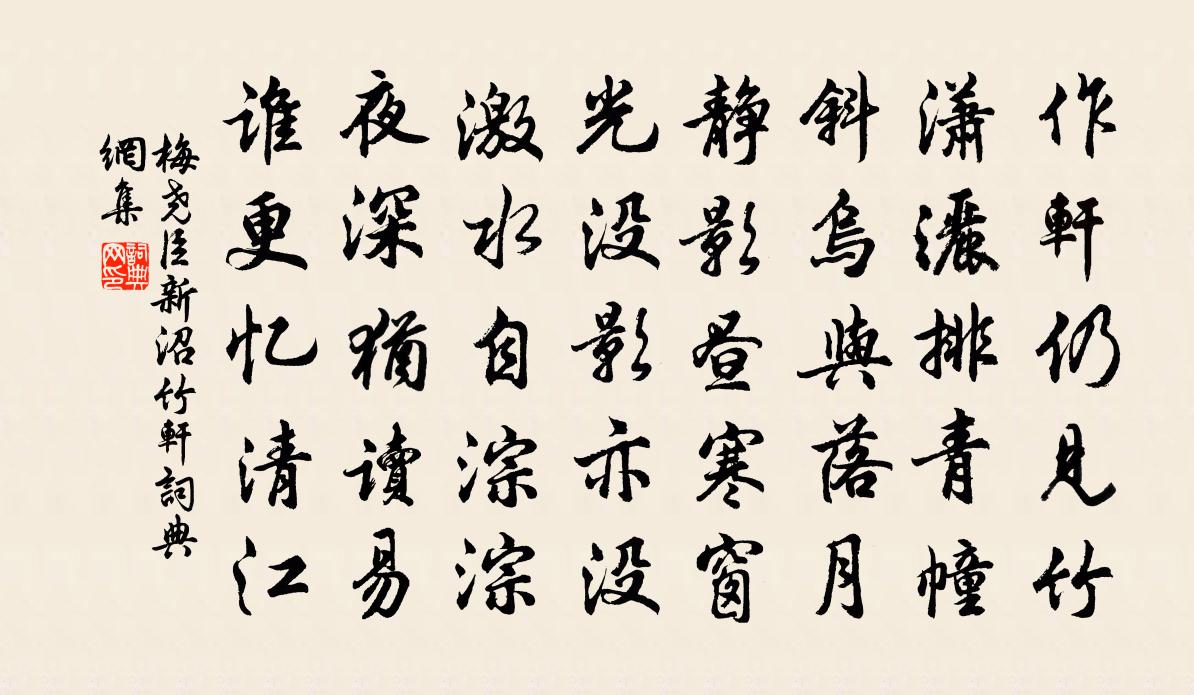 作軒仍見竹
瀟灑排青幢
斜烏與落月
靜影晝寒窗
光没影亦没
激水自淙淙
夜深猶讀易
谁更忆清江
梅尧臣新沼竹軒詞典
網集
詞典
网印